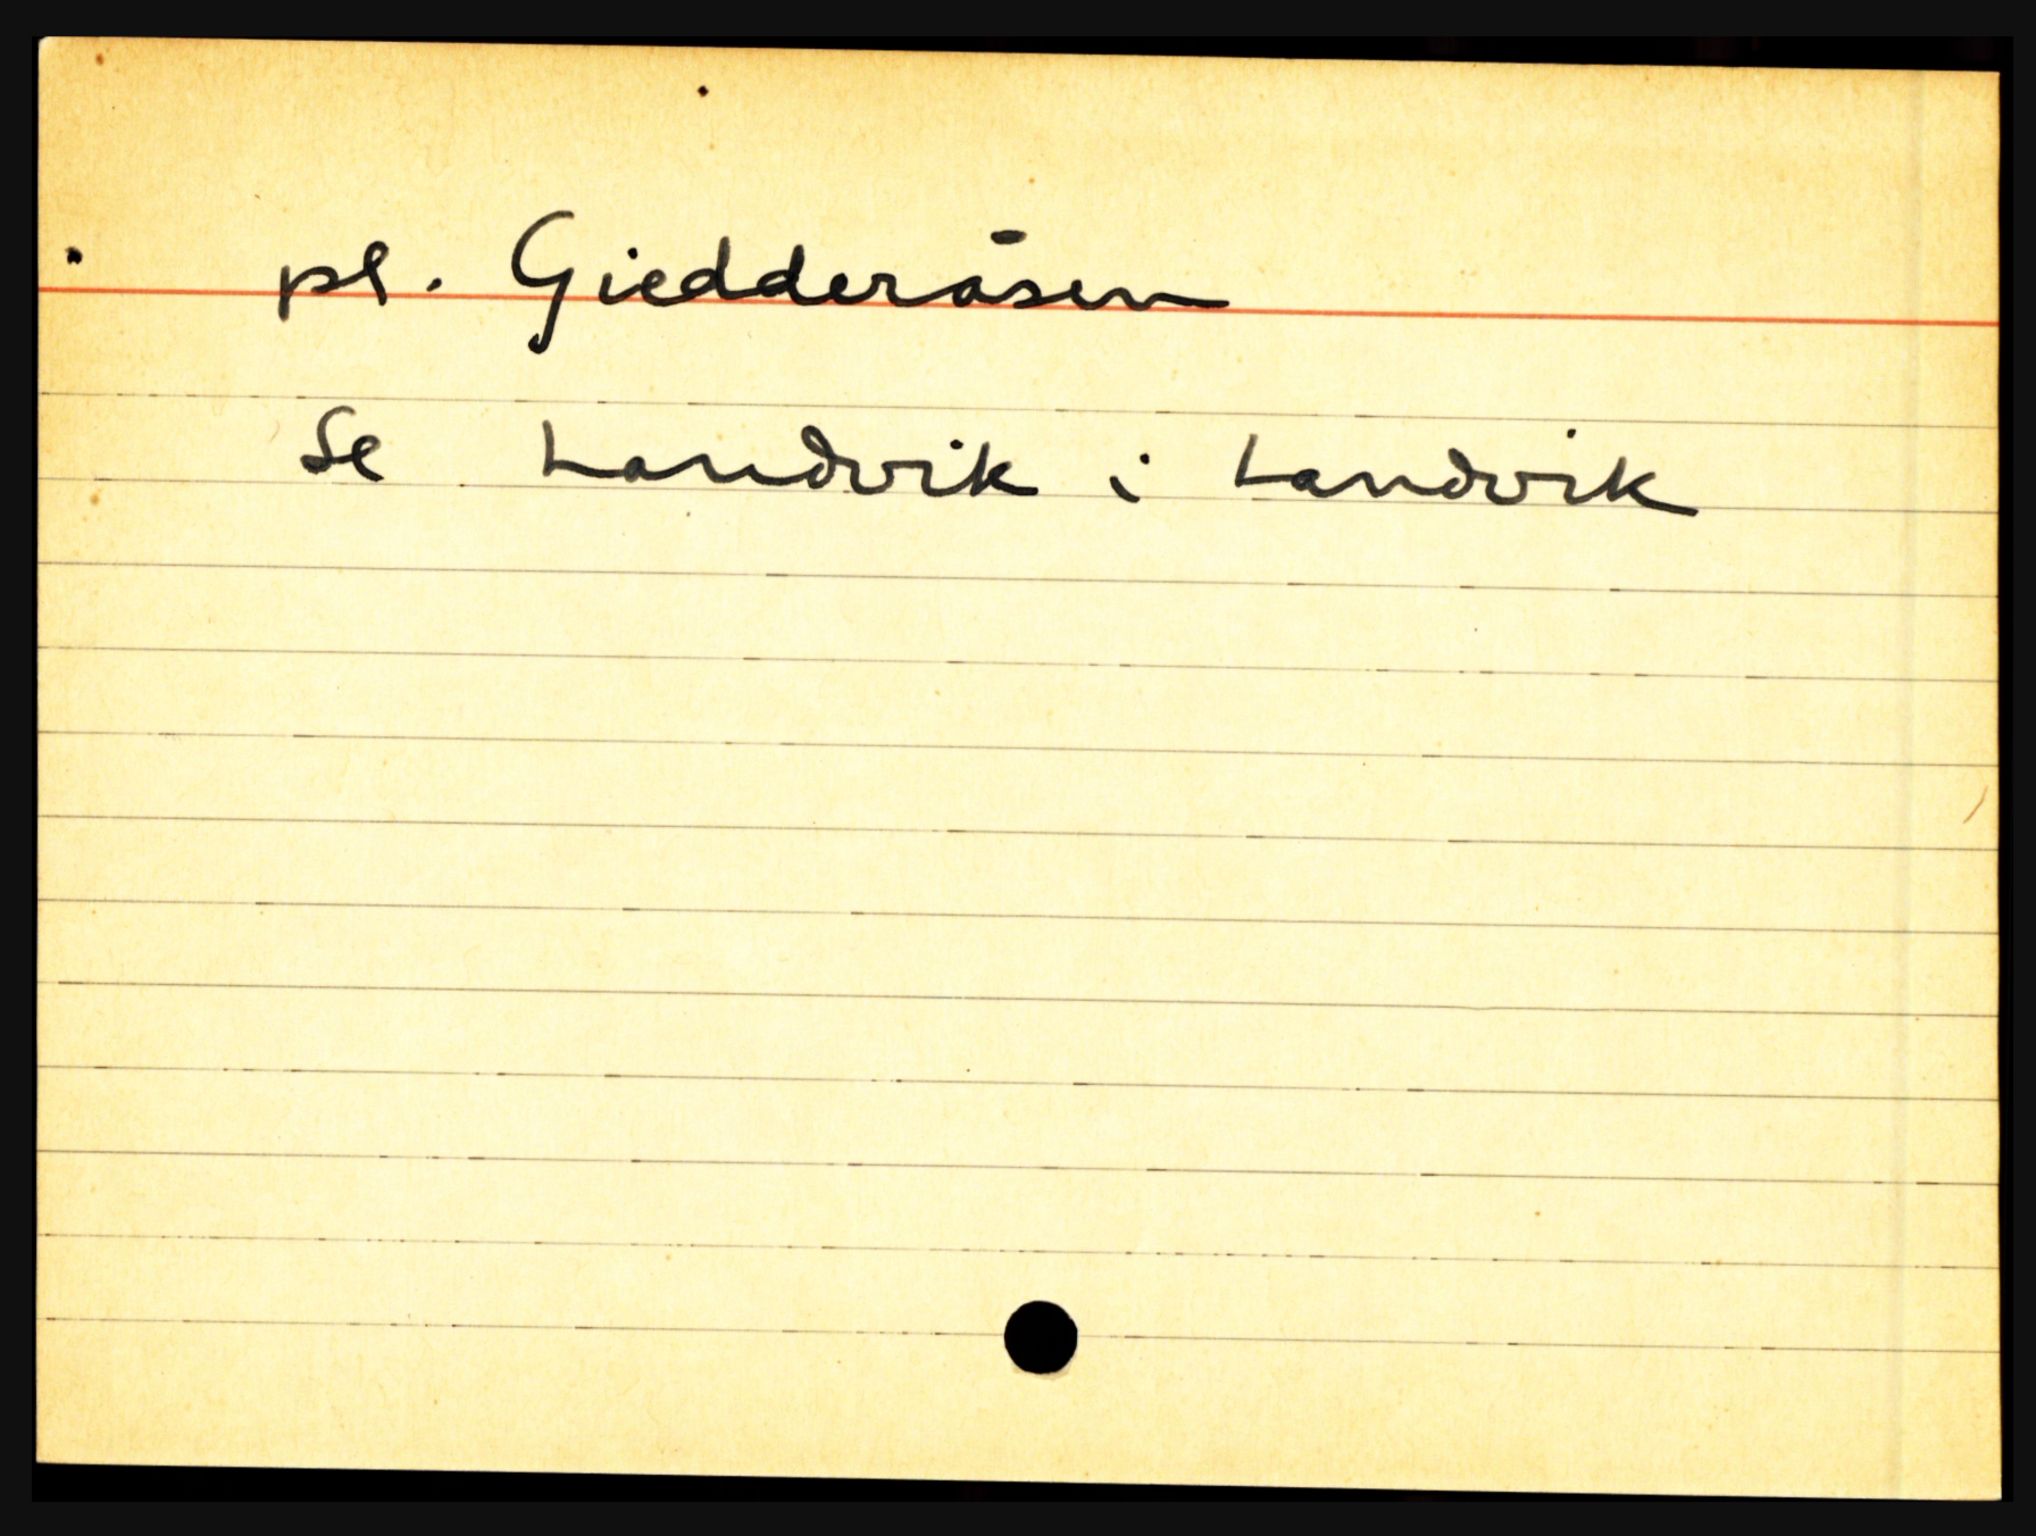 pl. Giedderåsen
Se Landvik i Landvik